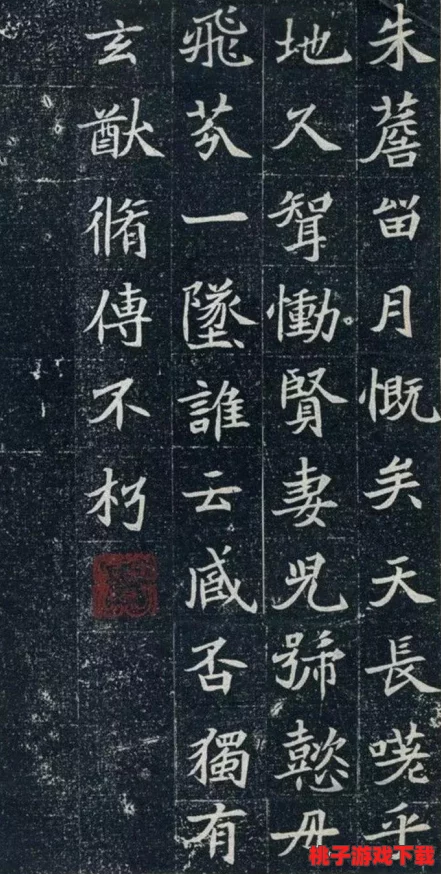 朱薝留月慨矣天長嗟乎
地久聟慟賢妻兒號懿毋
飛芬一墜誰云臧否獨有
玄猷脩傳不朽
桃子游戏下载